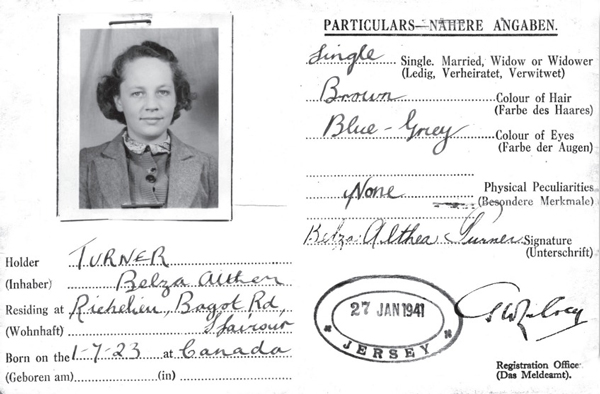 PARTICULARS—NÄHERE ANGABEN.
Single Single. Married, Widow or Widower
(Ledig, Verheiratet, Verwitwet)
Brown Colour of Hair
(Farbe des Haares)
Blue-Grey Colour of Eyes
(Farbe der Augen)
None Physical Peculiarities
(Besondere Merkmale)
Belza Althea Turner Signature
(Unterschrift)
Holder TURNER
(Inhaber) Belza Althea
Residing at Richelieu, Bagot Rd,
(Wohnhaft) S'Saviour
Born on the 1-7-23 at Canada
(Geboren am) (in)
27 JAN 1941
JERSEY
Registration Office
(Das Meldeamt).